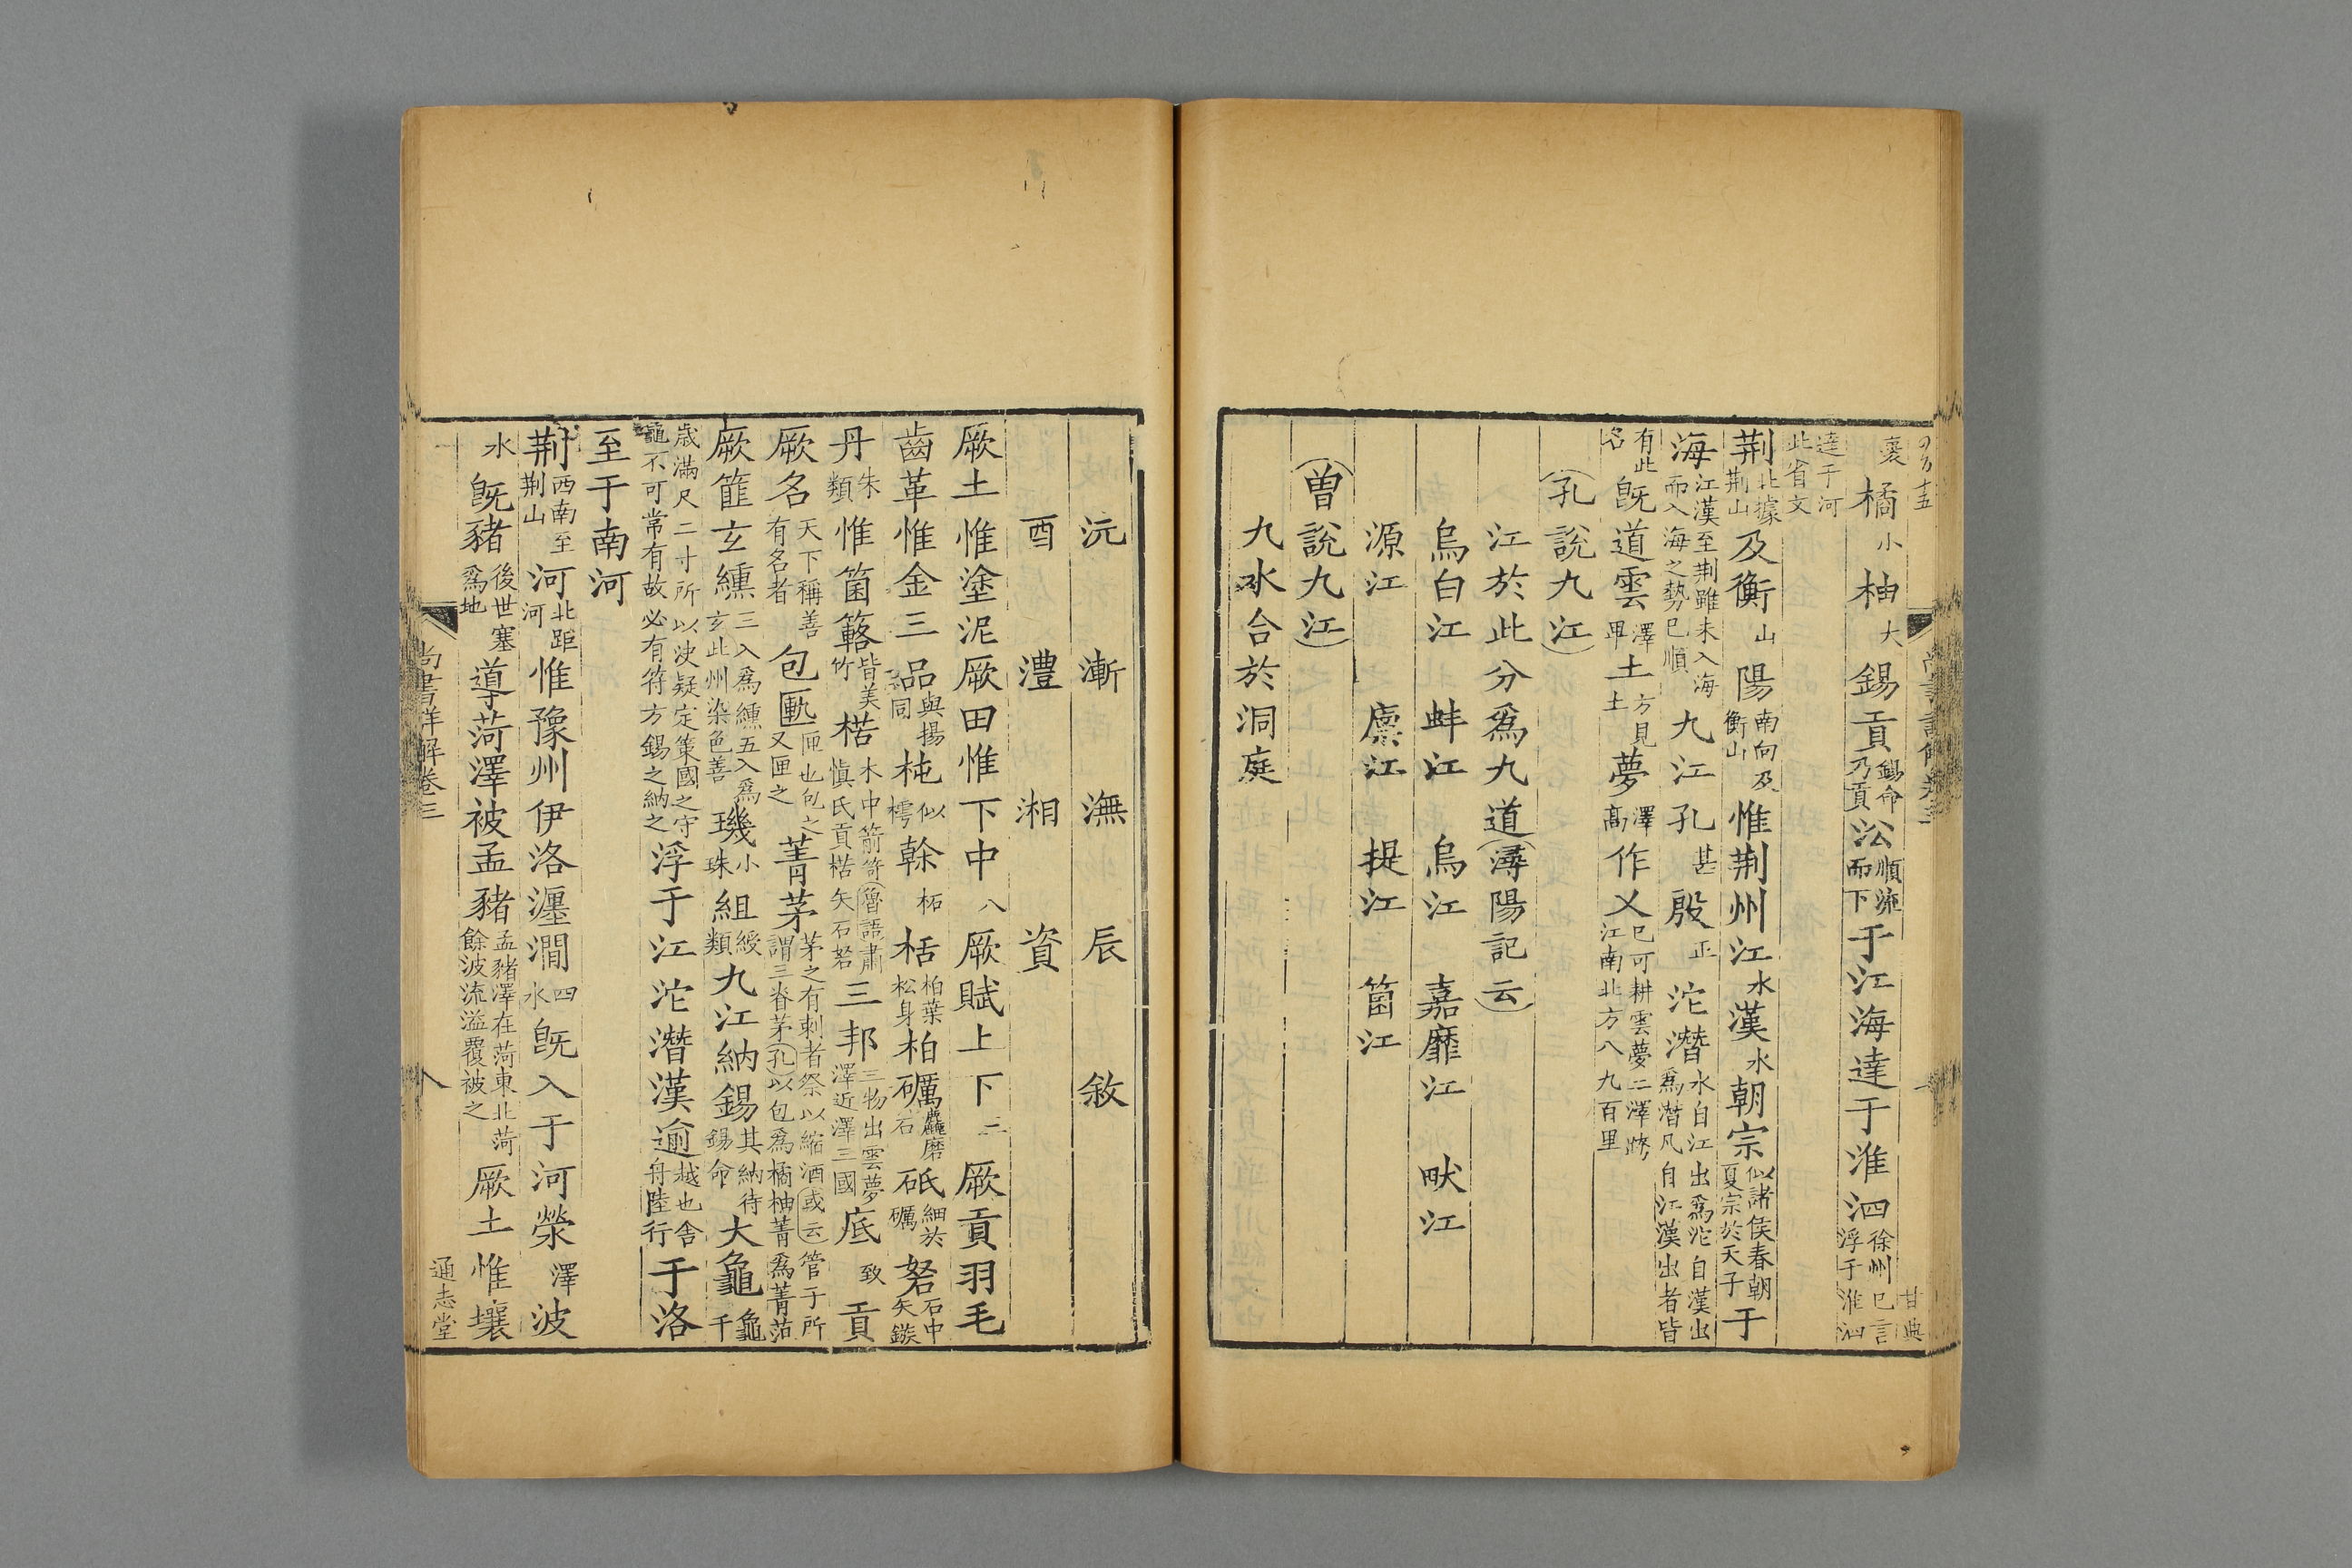 裹橘小柚大錫貢錫命乃貢㳂順流而下于江海達于淮泗徐州已言浮于淮泗
達于河此省文
荆北據荆山及衡山陽南向及衡山惟荆州江水漢水朝宗似諸侯春朝夏宗於天子于
海江漢至荆雖未入海而入海之勢已順九江孔甚殷正沱潛水自江出爲沱自漢出爲潛凡自江漢出者皆
有此名旣道雲澤畢土方見土夢澤髙作乂已可耕雲夢二澤跨江南北方八九百里
孔說九江
江於此分爲九道潯陽記云
烏白江 蚌江 烏江 嘉靡江 畎江
源江 廩江 提江 箘江
曾說九江
九水合於洞庭
甘典
沅 漸 潕 辰 敘
酉 澧 湘 資
厥土惟塗泥厥田惟下中八厥賦上下三厥貢羽毛
齒革惟金三品與揚同杶似樗榦柘栝柏葉松身柏礪麤磨石砥細於礪砮石中矢鏃
丹朱類惟箘簵皆美竹楛木中箭笴魯語肅愼氏貢楛矢石砮三邦三物出雲夢澤近澤三國厎致貢
厥名天下稱善有名者包匭匣也包之又匣之菁茅茅之有刺者祭以縮酒或云管子所謂三脊茅孔以包爲橘柚菁爲菁菹
厥篚玄纁三入爲纁五入爲玄此州染色善璣小珠組綬類九江納錫其納待錫命大龜龜千
歲滿尺二寸所以決疑定策國之守龜不可常有故必有符方錫之納之浮于江沱潛漢逾越也舍舟陸行于洛
至于南河
荆西南至荆山河北距河惟豫州伊洛瀍澗四水旣入于河滎澤波
水旣豬後世塞爲地導菏澤被孟豬孟豬澤在菏東北菏餘波流溢覆被之厥土惟壤
尚書詳解卷三 八 通志堂